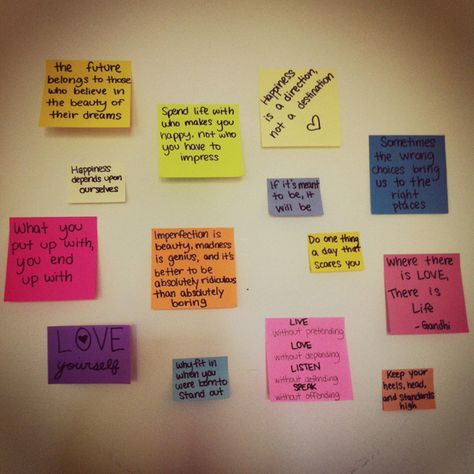 the future
belongs to those
who believe in
the beauty of
their dreams
Spend life with
who makes you
happy, not who
you have to
impress
Happiness
is a direction,
not a destination
Happiness
depends upon
ourselves
If it's meant
to be, it
will be
Sometimes
the wrong
choices bring
us to the
right
places
What you
put up with,
you end
up with
Imperfection is
beauty, madness
is genius, and it's
better to be
absolutely ridiculous
than absolutely
boring
Do one thing
a day that
scares you
Where there
is LOVE,
There is
Life
-Gandhi
LOVE
yourself
Why fit in
when you
were born to
stand out
LIVE
without pretending
LOVE
without depending
LISTEN
without defending
SPEAK
without offending
Keep your
heels, head,
and standards
high